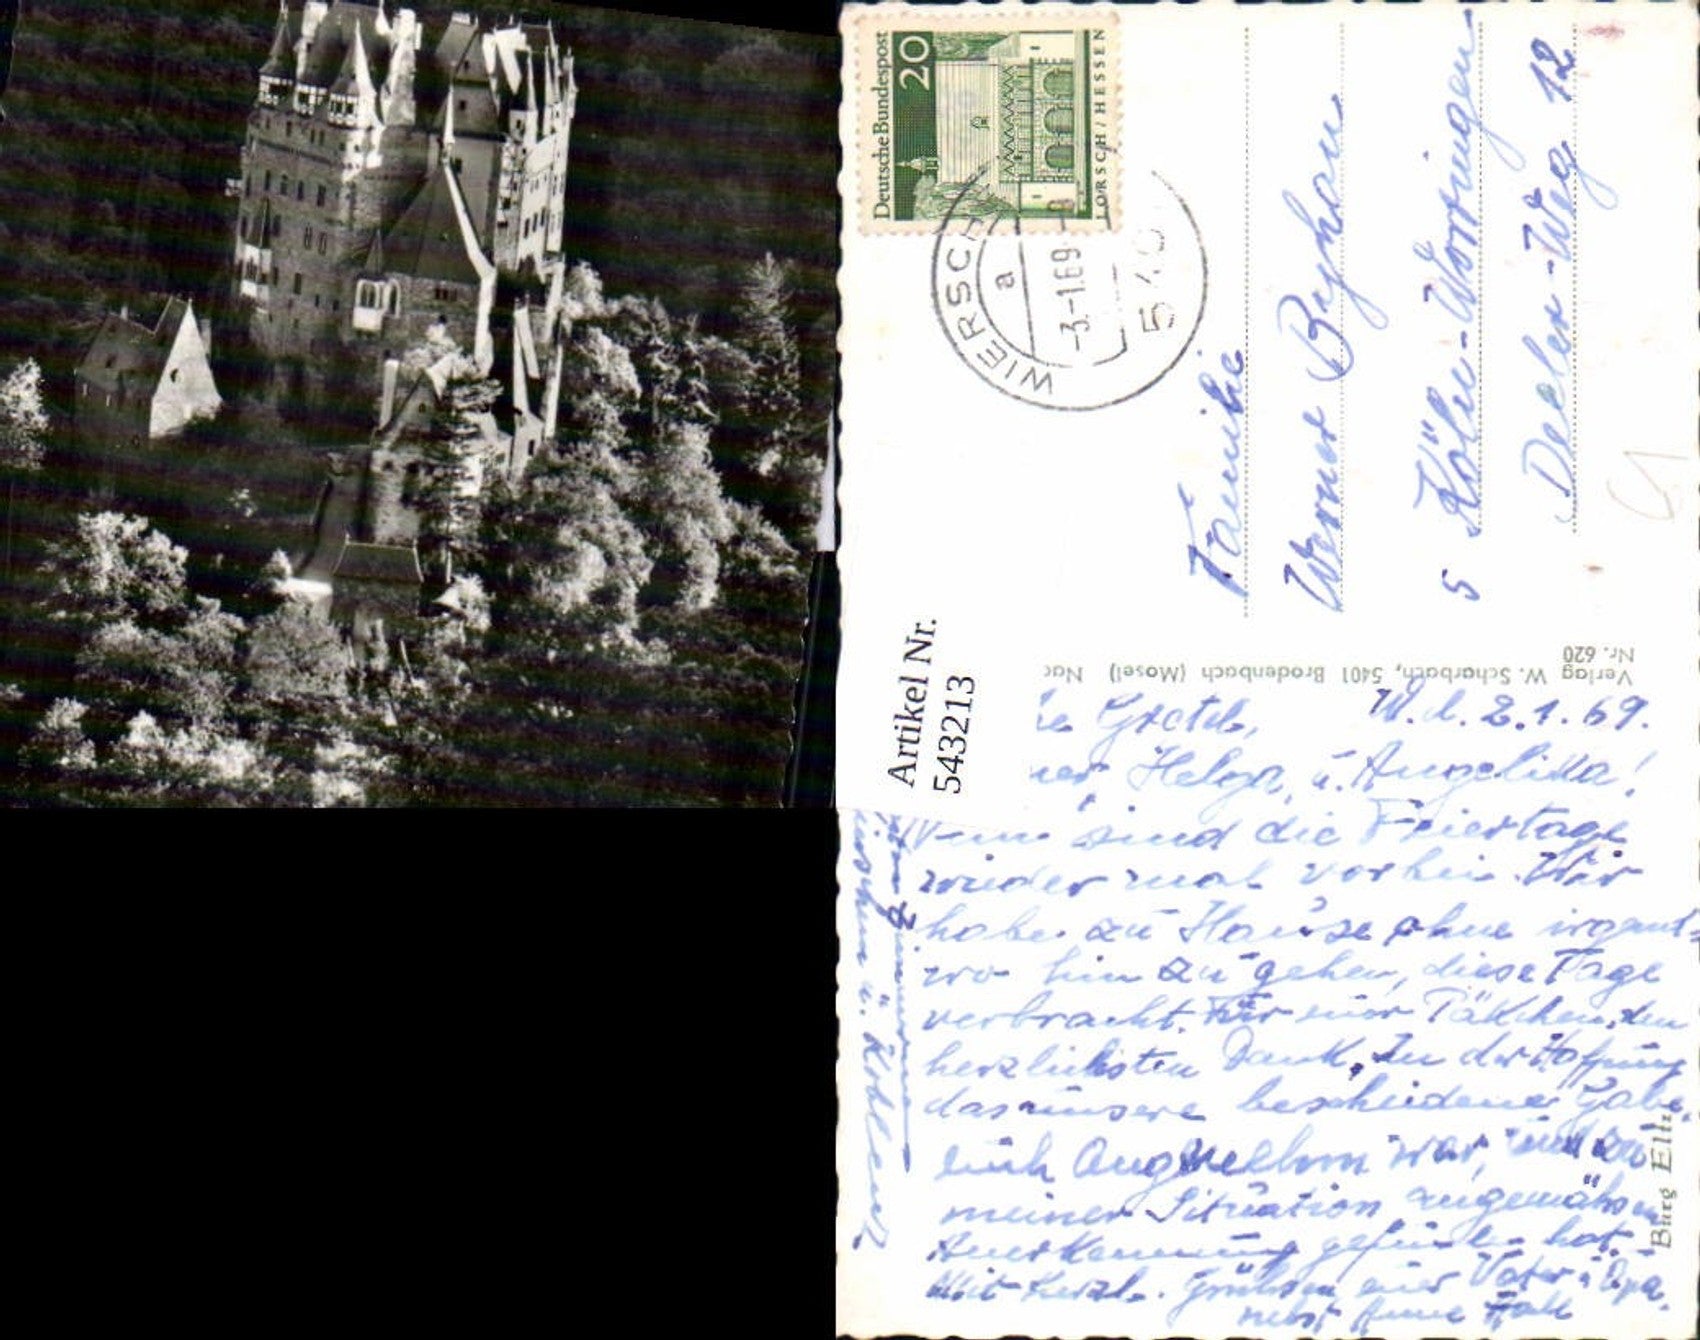 Deutsche Bundespost
20
LORSCH / HESSEN
WIERSCH
a
-3.-1.69
Familie
Werner
5 Köln-Worringen
Deeler-Weg 12
Artikel Nr.
543213
Verlag W. Scharbach, 5401 Brodenbach (Mosel) Nac
Nr. 620
Burg Eltz
W. d. 2.1.69.
Helga, u. Angelika!
sind die Feiertage
wieder mal vorbei. Wir
habe zu Hause ohne irgent=
wo hin zu gehen, diese Tage
verbracht. Für euer Päkchen, den
herzlichsten Dank, In der Hoffnung
das unsere bescheidene Gabe,
euch Angenehm war, und zu
meiner Situation angemähsene
Anerkennung gefunden hat.
Mit herzl. Grühsen euer Vater u. Opa.
nebst Anna